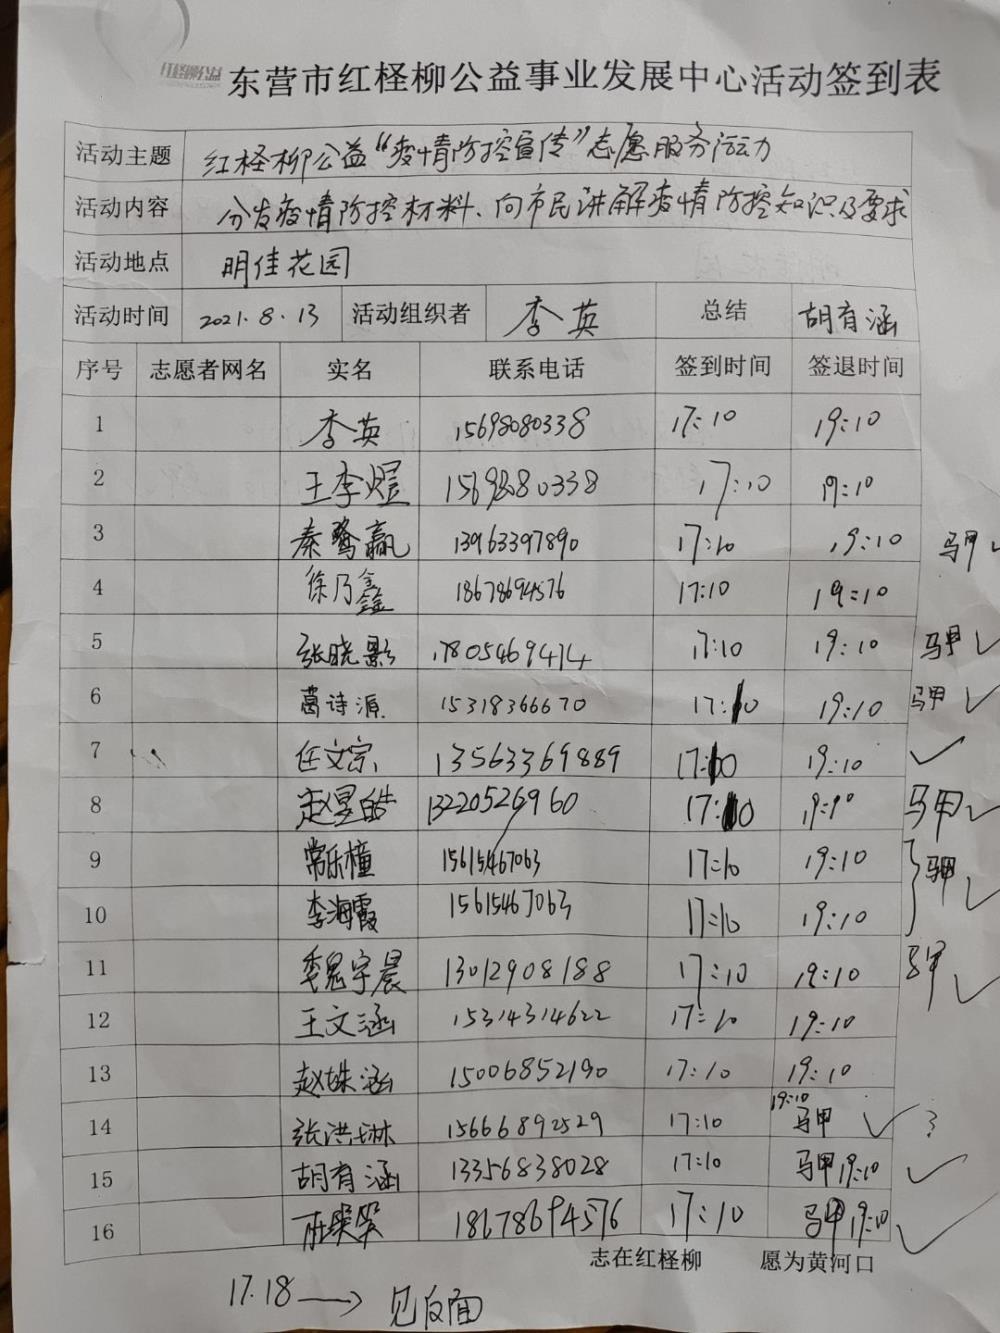 红柽柳公益
东营市红柽柳公益事业发展中心活动签到表
活动主题 红柽柳公益“疫情防控宣传”志愿服务活动
活动内容 分发疫情防控材料、向市民讲解疫情防控知识及要求
活动地点 明佳花园
活动时间 2021.8.13 活动组织者 李英 总结 胡有涵
序号 志愿者网名 实名 联系电话 签到时间 签退时间
1 李英 15698080338 17:10 19:10
2 王李煜 15698080338 17:10 19:10
3 秦鹭赢 13963397890 17:10 19:10 马甲✓
4 徐乃鑫 18678694576 17:10 19:10
5 张晓影 17805469414 17:10 19:10 马甲✓
6 葛诗源 15318366670 17:10 19:10 马甲✓
7 任文宗 13563369889 17:10 19:10 ✓
8 赵昱皓 13220526960 17:10 19:10 马甲✓
9 常乐橦 15615467063 17:10 19:10 } 马甲✓
10 李海霞 15615467063 17:10 19:10
11 季宇晨 13012908188 17:10 19:10 马甲✓
12 王文涵 15314314622 17:10 19:10
13 赵姝涵 15006852190 17:10 19:10
14 张洪琳 15666892529 17:10 19:10 马甲 ✓ ?
15 胡有涵 13356838028 17:10 马甲 19:10 ✓
16 18678694576 17:10 马甲 19:10 ✓
志在红柽柳 愿为黄河口
17.18 → 见反面